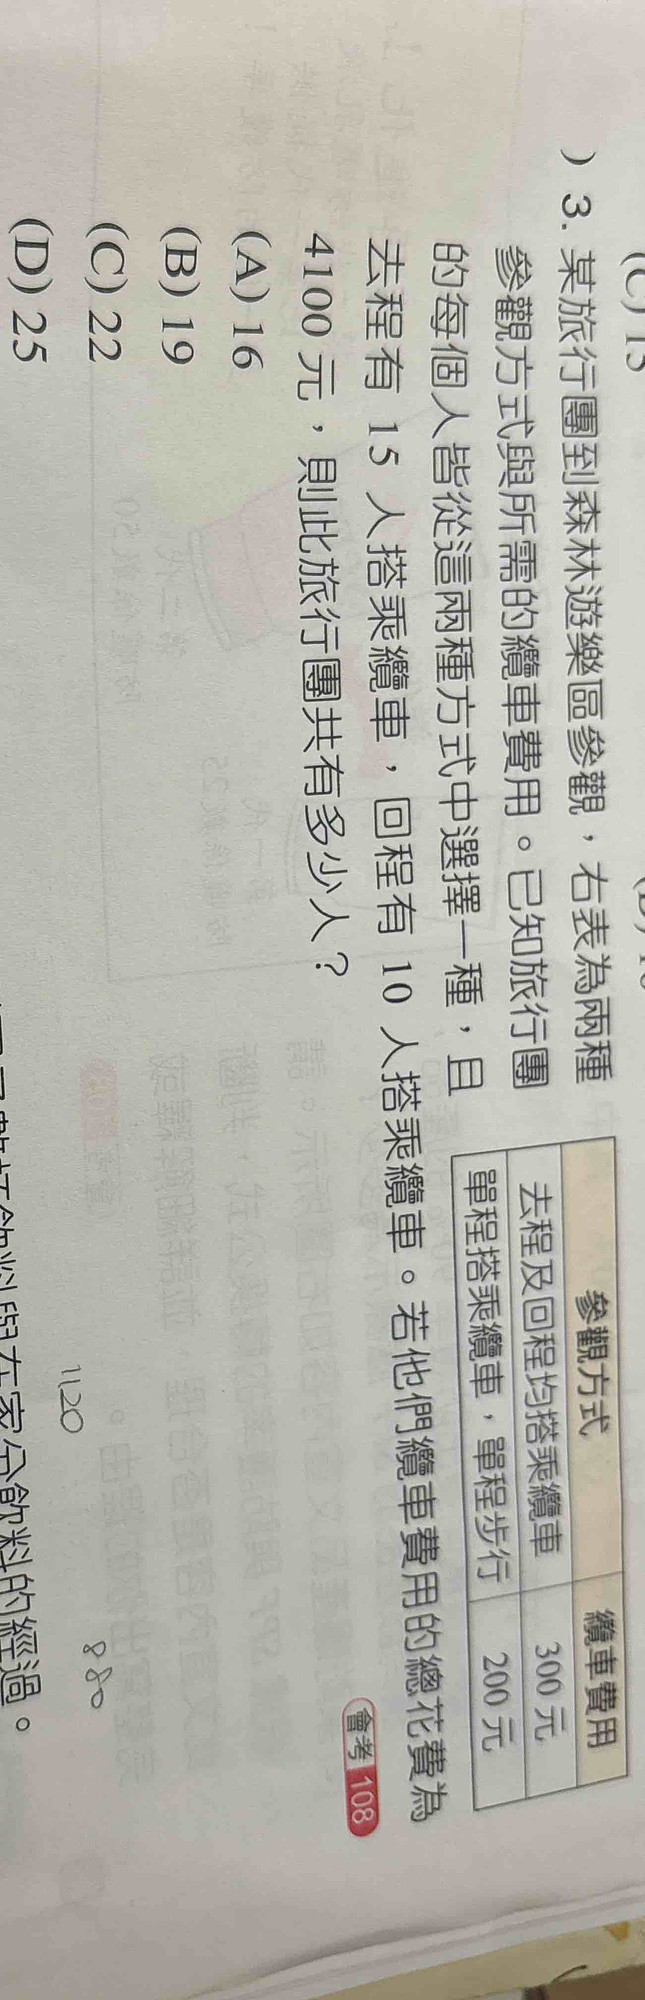 (C) 15
) 3. 某旅行團到森林遊樂區參觀，右表為兩種
參觀方式與所需的纜車費用。已知旅行團
的每個人皆從這兩種方式中選擇一種，且
去程有 15 人搭乘纜車，回程有 10 人搭乘纜車。若他們纜車費用的總花費為
4100 元，則此旅行團共有多少人？
會考 108
參觀方式 纜車費用
去程及回程均搭乘纜車 300 元
單程搭乘纜車，單程步行 200 元
(A) 16
(B) 19
(C) 22
(D) 25
1120
880
飲料與在家分飲料的經過。